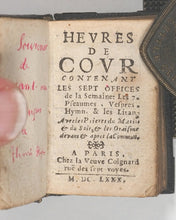 Souvenir
de
HEVRES
DE
COVR
CONTENANT
LES SEPT OFFICES
de la Semaine. Les 7
Pseaumes. Vespres
Hymn. & les Litan.
Avec les Prieres du Matin
& du Soir, & les Oraisons
devant & après la Comm.
A PARIS,
Chez la Veuve Coignard
ruë des sept voyes.
M. DC. LXXX.